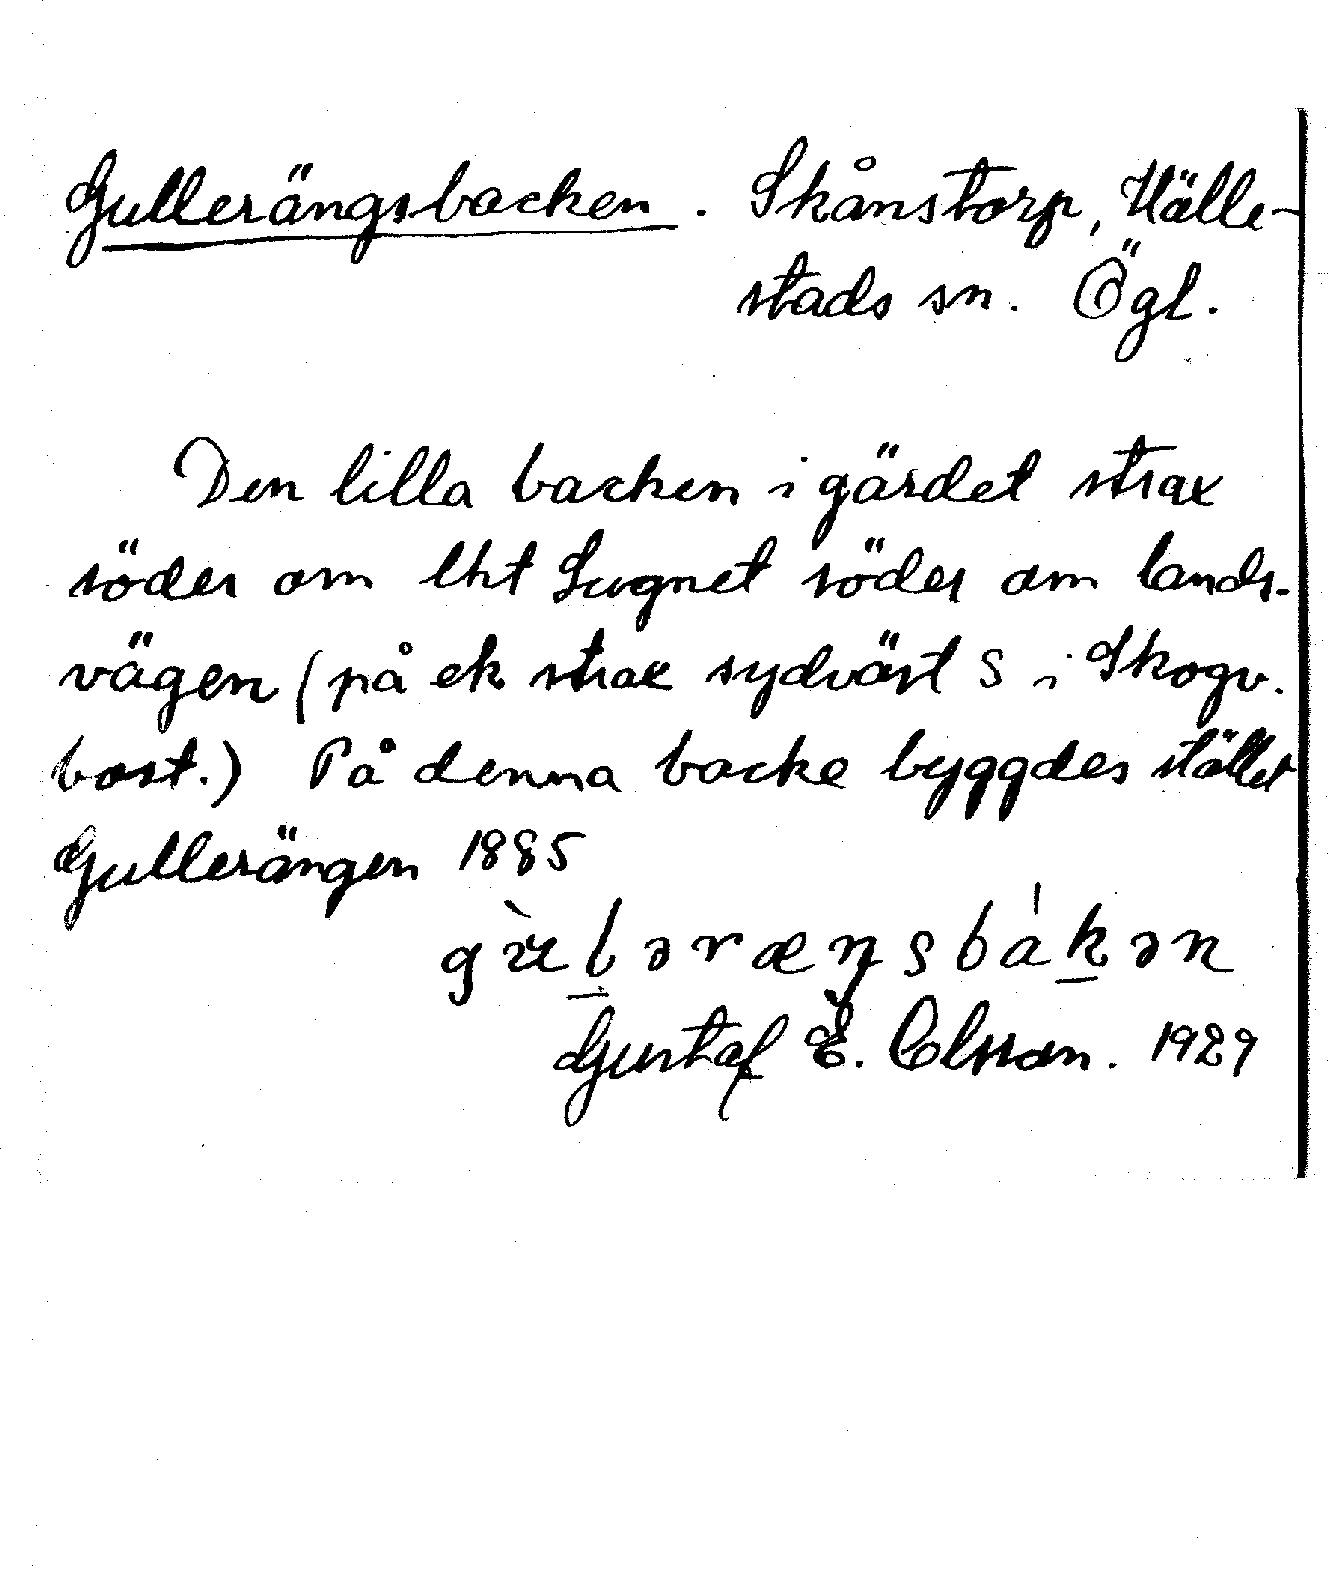 Gullerängsbacken. Skånstorp, Hälle-
stads sn. Ögl.
Den lilla backen i gärdet strax
söder om lht Lugnet söder om lands-
vägen (på ek strax sydväst S i Skogv.
bost.) På denna backe byggdes stället
Gullerängen 1885
gu̇̀ləræŋsbákən
Gustaf E. Olsson. 1929